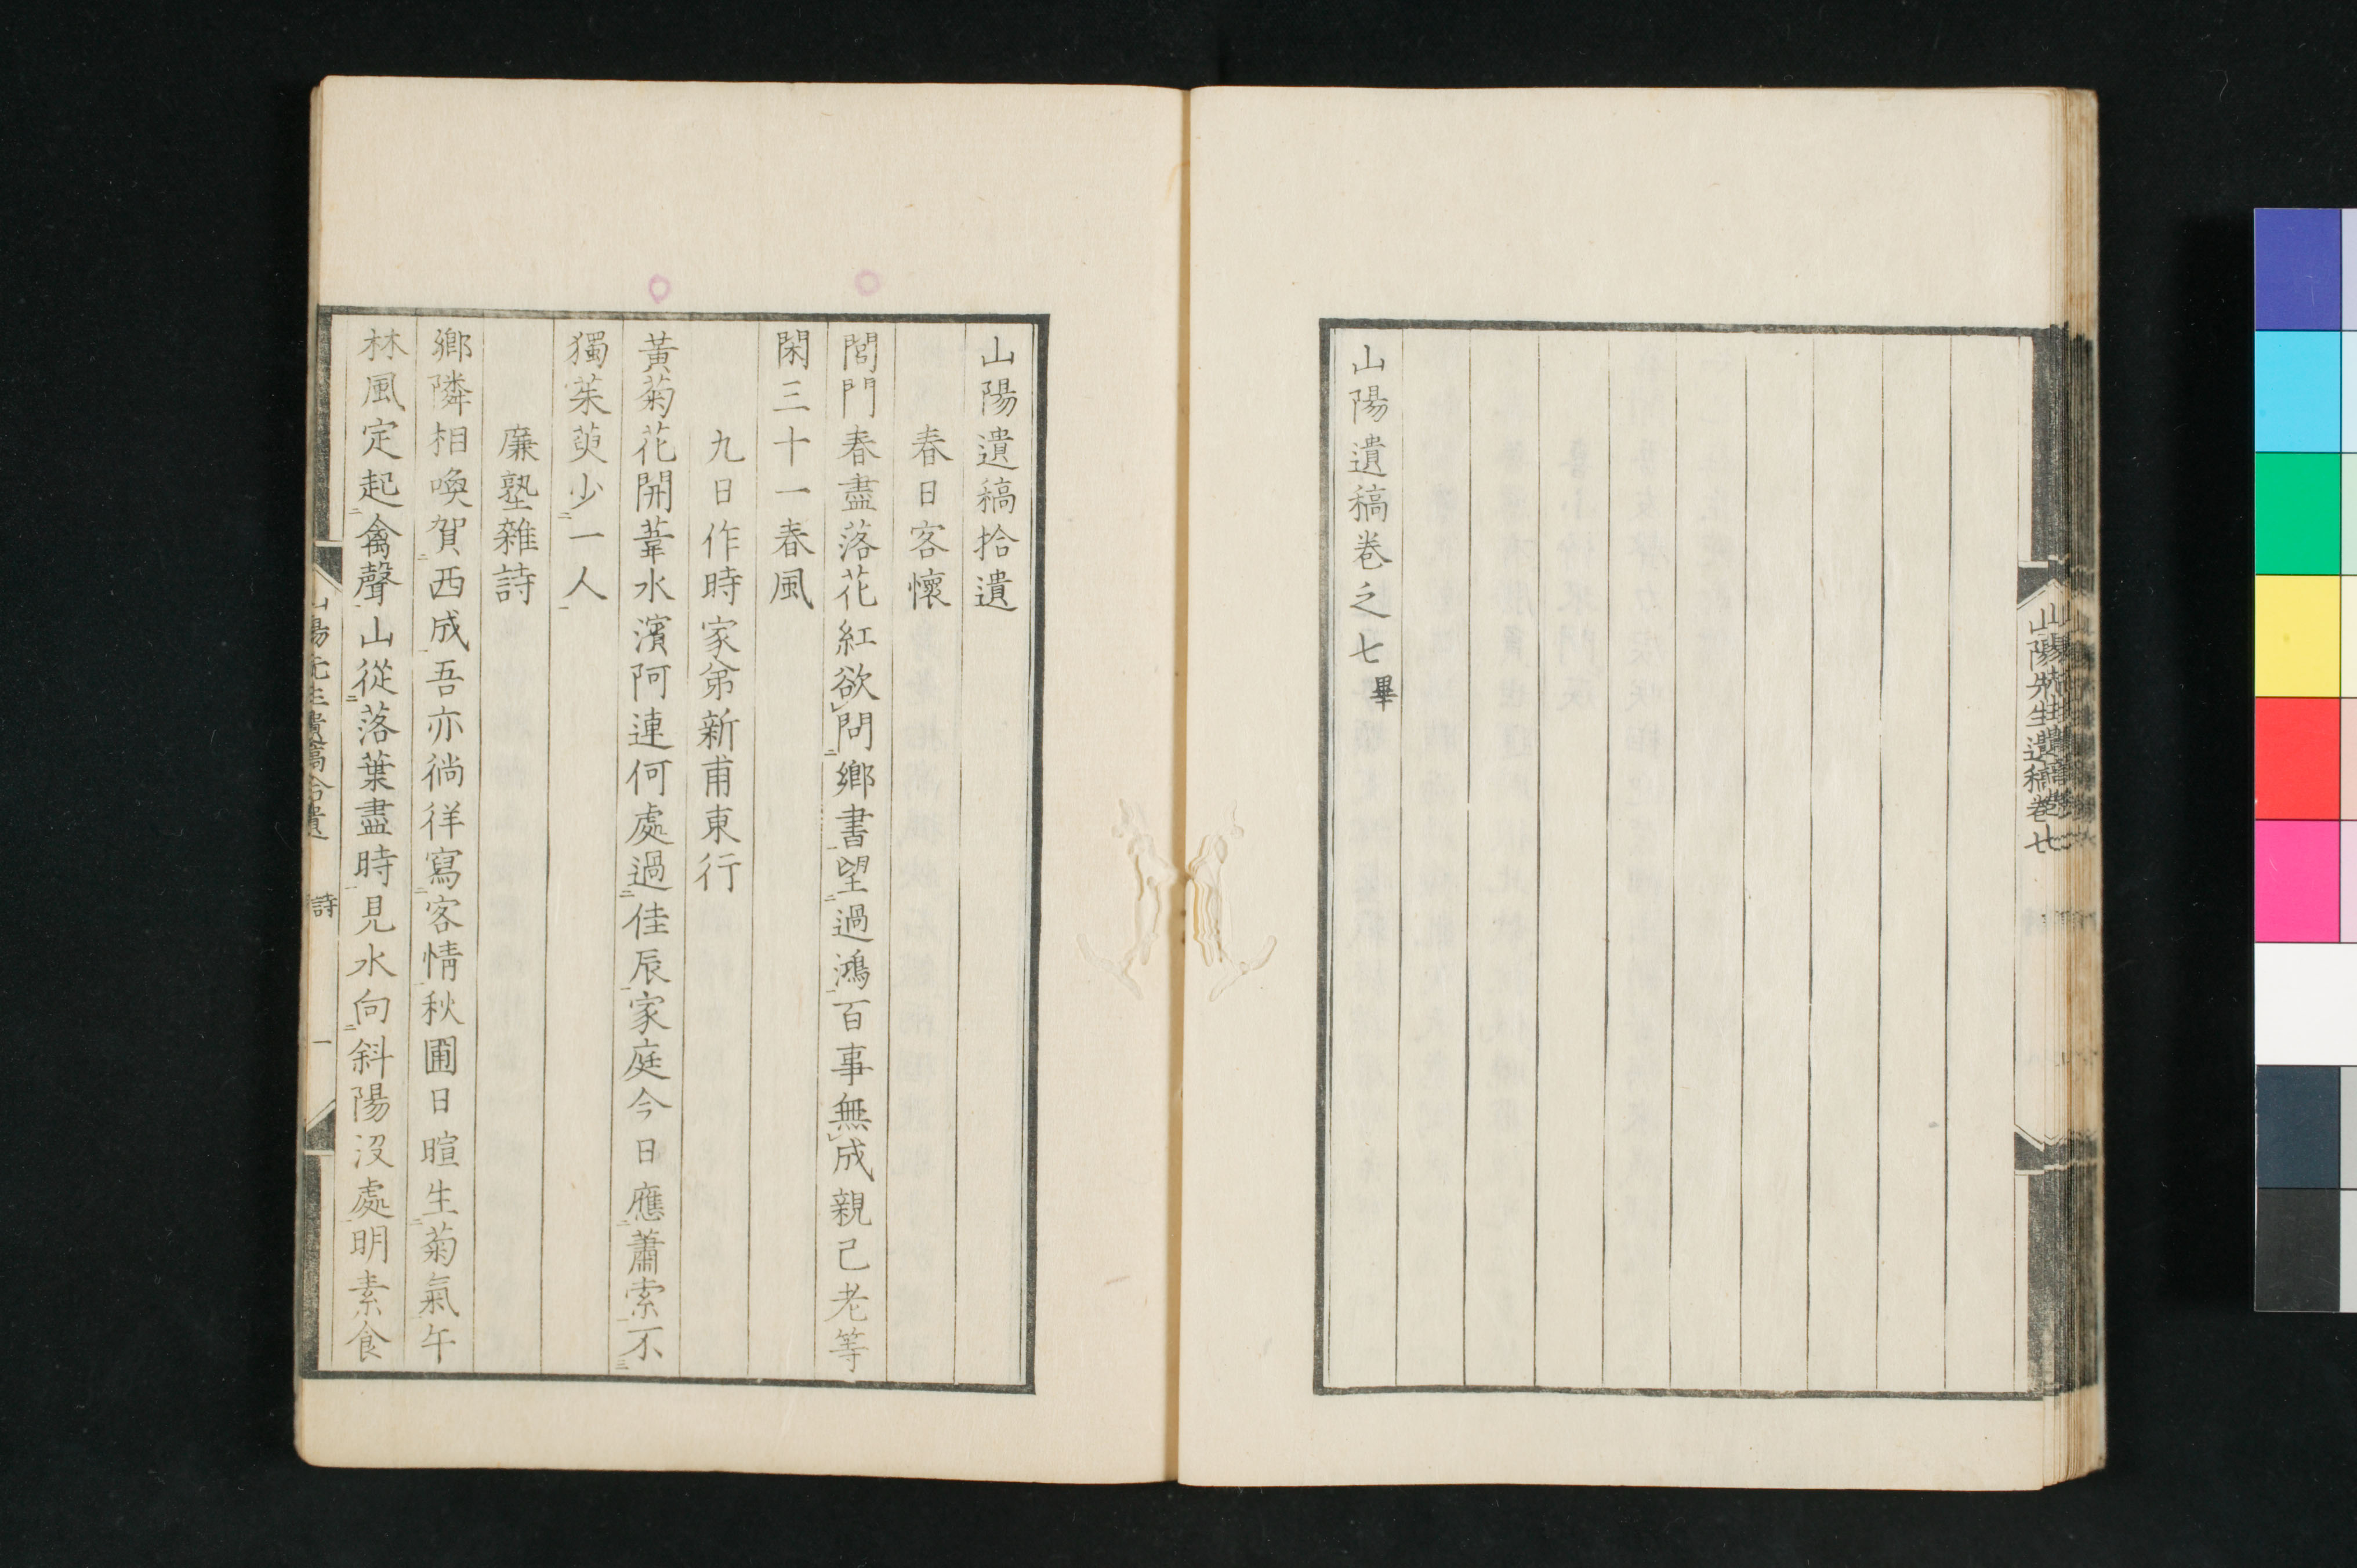 山陽先生遺稿卷七
山陽遺稿卷之七畢
山陽遺稿拾遺
春日客懷
閭門春盡落花紅欲問鄉書望過鴻百事無成親已老等
閑三十一春風
九日作時家弟新甫東行
黃菊花開葦水濱阿連何處過佳辰家庭今日應蕭索不
獨茱萸少一人
廉塾雜詩
鄉隣相喚賀西成吾亦徜徉寫客情秋圃日暄生菊氣午
林風定起禽聲山從落葉盡時見水向斜陽沒處明素食
山陽先生遺稿拾遺 詩 一